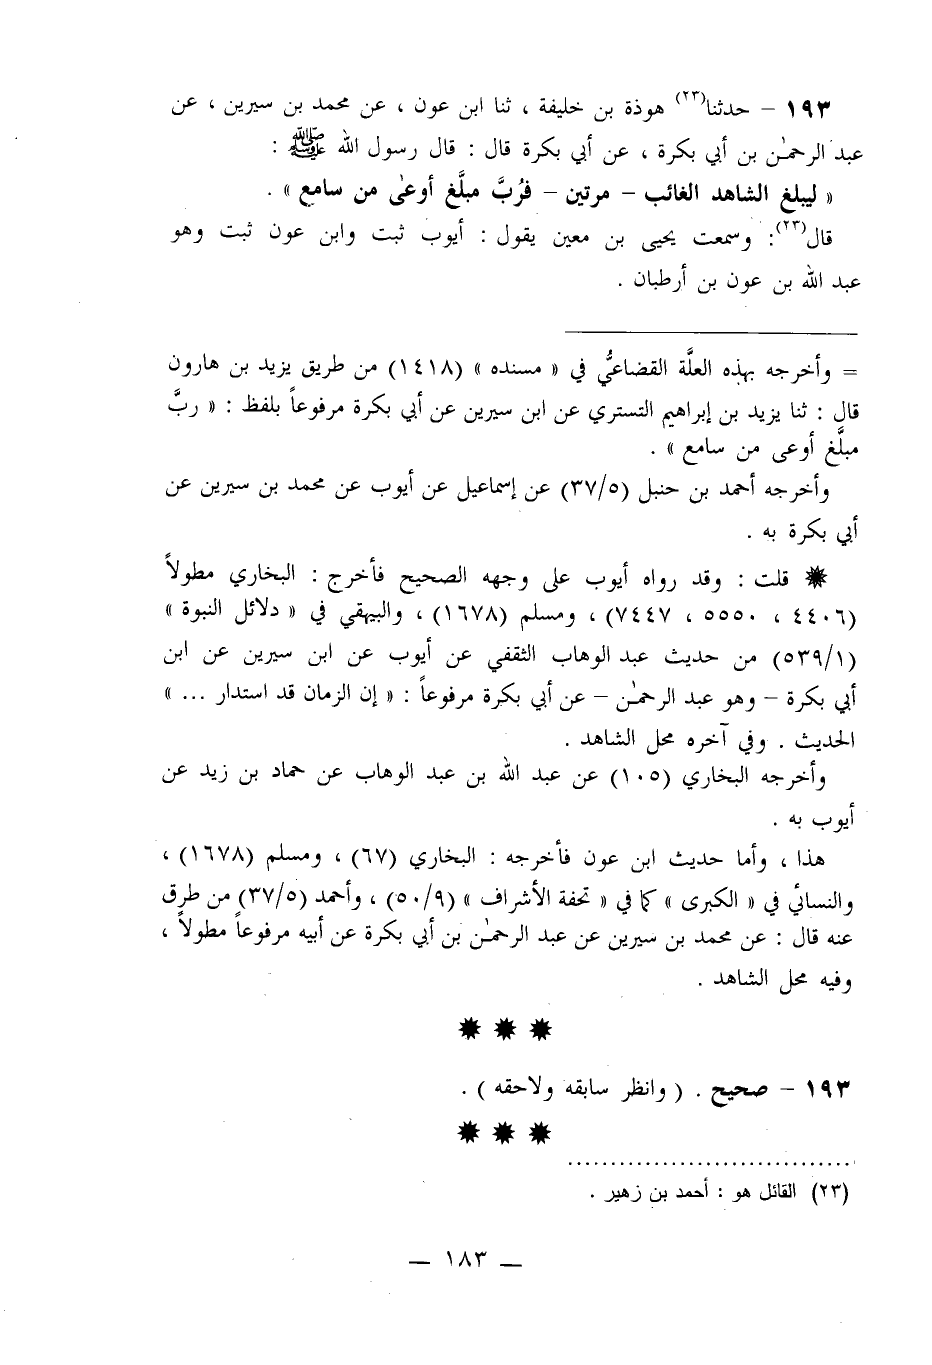 ١٩٣ – حدثنا(٢٣) هوذة بن خليفة ، ثنا ابن عون ، عن محمد بن سيرين ، عن
عبد الرحمٰن بن أبي بكرة ، عن أبي بكرة قال : قال رسول الله ﷺ :
« ليبلغ الشاهد الغائب – مرتين – فَرُبَّ مبلَّغ أوعىٰ من سامع » .
قال(٢٣): وسمعت يحيى بن معين يقول : أيوب ثبت وابن عون ثبت وهو
عبد الله بن عون بن أرطبان .
= وأخرجه بهذه العلَّة القضاعيُّ في « مسنده » (١٤١٨) من طريق يزيد بن هارون
قال : ثنا يزيد بن إبراهيم التستري عن ابن سيرين عن أبي بكرة مرفوعاً بلفظ : « ربَّ
مبلَّغ أوعى من سامع » .
وأخرجه أحمد بن حنبل (٣٧/٥) عن إسماعيل عن أيوب عن محمد بن سيرين عن
أبي بكرة به .
✹ قلت : وقد رواه أيوب على وجهه الصحيح فأخرج : البخاري مطولاً
(٤٤٠٦ ، ٥٥٥٠ ، ٧٤٤٧) ، ومسلم (١٦٧٨) ، والبيهقي في « دلائل النبوة »
(٥٣٩/١) من حديث عبد الوهاب الثقفي عن أيوب عن ابن سيرين عن ابن
أبي بكرة – وهو عبد الرحمٰن – عن أبي بكرة مرفوعاً : « إن الزمان قد استدار ... »
الحديث . وفي آخره محل الشاهد .
وأخرجه البخاري (١٠٥) عن عبد الله بن عبد الوهاب عن حماد بن زيد عن
أيوب به .
هذا ، وأما حديث ابن عون فأخرجه : البخاري (٦٧) ، ومسلم (١٦٧٨) ،
والنسائي في « الكبرى » كما في « تحفة الأشراف » (٥٠/٩) ، وأحمد (٣٧/٥) من طرق
عنه قال : عن محمد بن سيرين عن عبد الرحمٰن بن أبي بكرة عن أبيه مرفوعاً مطولاً ،
وفيه محل الشاهد .
✹ ✹ ✹
١٩٣ – صحيح . ( وانظر سابقه ولاحقه ) .
✹ ✹ ✹
(٢٣) القائل هو : أحمد بن زهير .
– ١٨٣ –